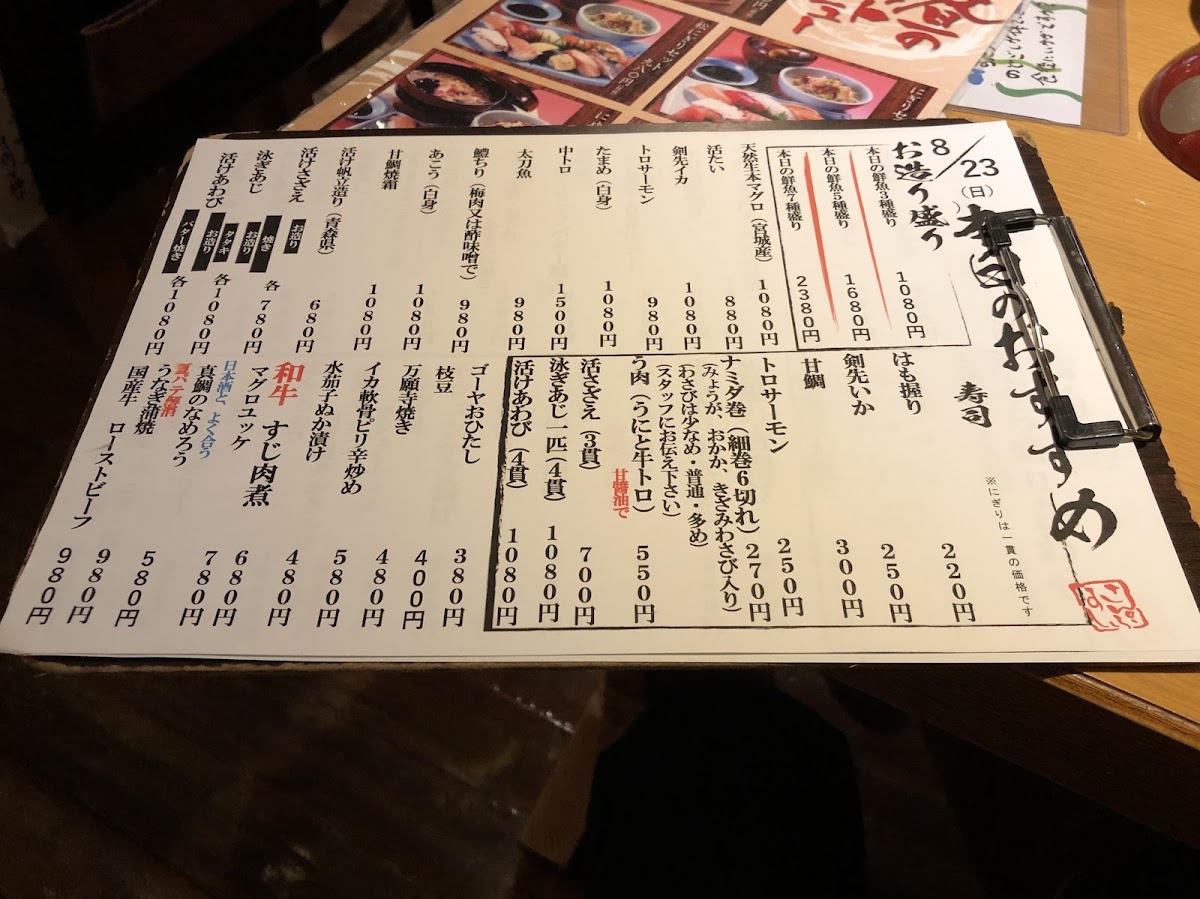 8/23(日)
本日のおすすめ
お造り盛り
本日の鮮魚3種盛り 1080円
本日の鮮魚5種盛り 1680円
本日の鮮魚7種盛り 2380円
天然生本マグロ(宮城産) 1080円
活たい 880円
剣先イカ 1080円
トロサーモン 980円
たまめ(白身) 1080円
中トロ 1500円
太刀魚 980円
鱧ちり(梅肉又は酢味噌で) 980円
あこう(白身) 1080円
甘鯛焼霜 1080円
活け帆立造り(青森県) 680円
活けさざえ お造り 焼き 各780円
泳ぎあじ お造り タタキ 各1080円
活けあわび お造り バター焼き 各1080円
寿司
※にぎりは一貫の価格です
はも握り 220円
剣先いか 250円
甘鯛 300円
トロサーモン 250円
ナミダ巻(細巻6切れ) 270円
(みょうが、おかか、きざみわさび入り)
(わさびは少なめ・普通・多め)
(スタッフにお伝え下さい)
う肉(うにと牛トロ) 550円
甘醤油で
活さざえ(3貫) 700円
泳ぎあじ一匹(4貫) 1080円
活けあわび(4貫) 1080円
ゴーヤおひたし 380円
枝豆 400円
万願寺焼き 480円
イカ軟骨ピリ辛炒め 580円
水茄子ぬか漬け 480円
和牛 すじ肉煮 680円
マグロユッケ 780円
日本酒と、よく合う
真鯛のなめろう 580円
夏バテ解消
うなぎ蒲焼 980円
国産牛 ローストビーフ 980円